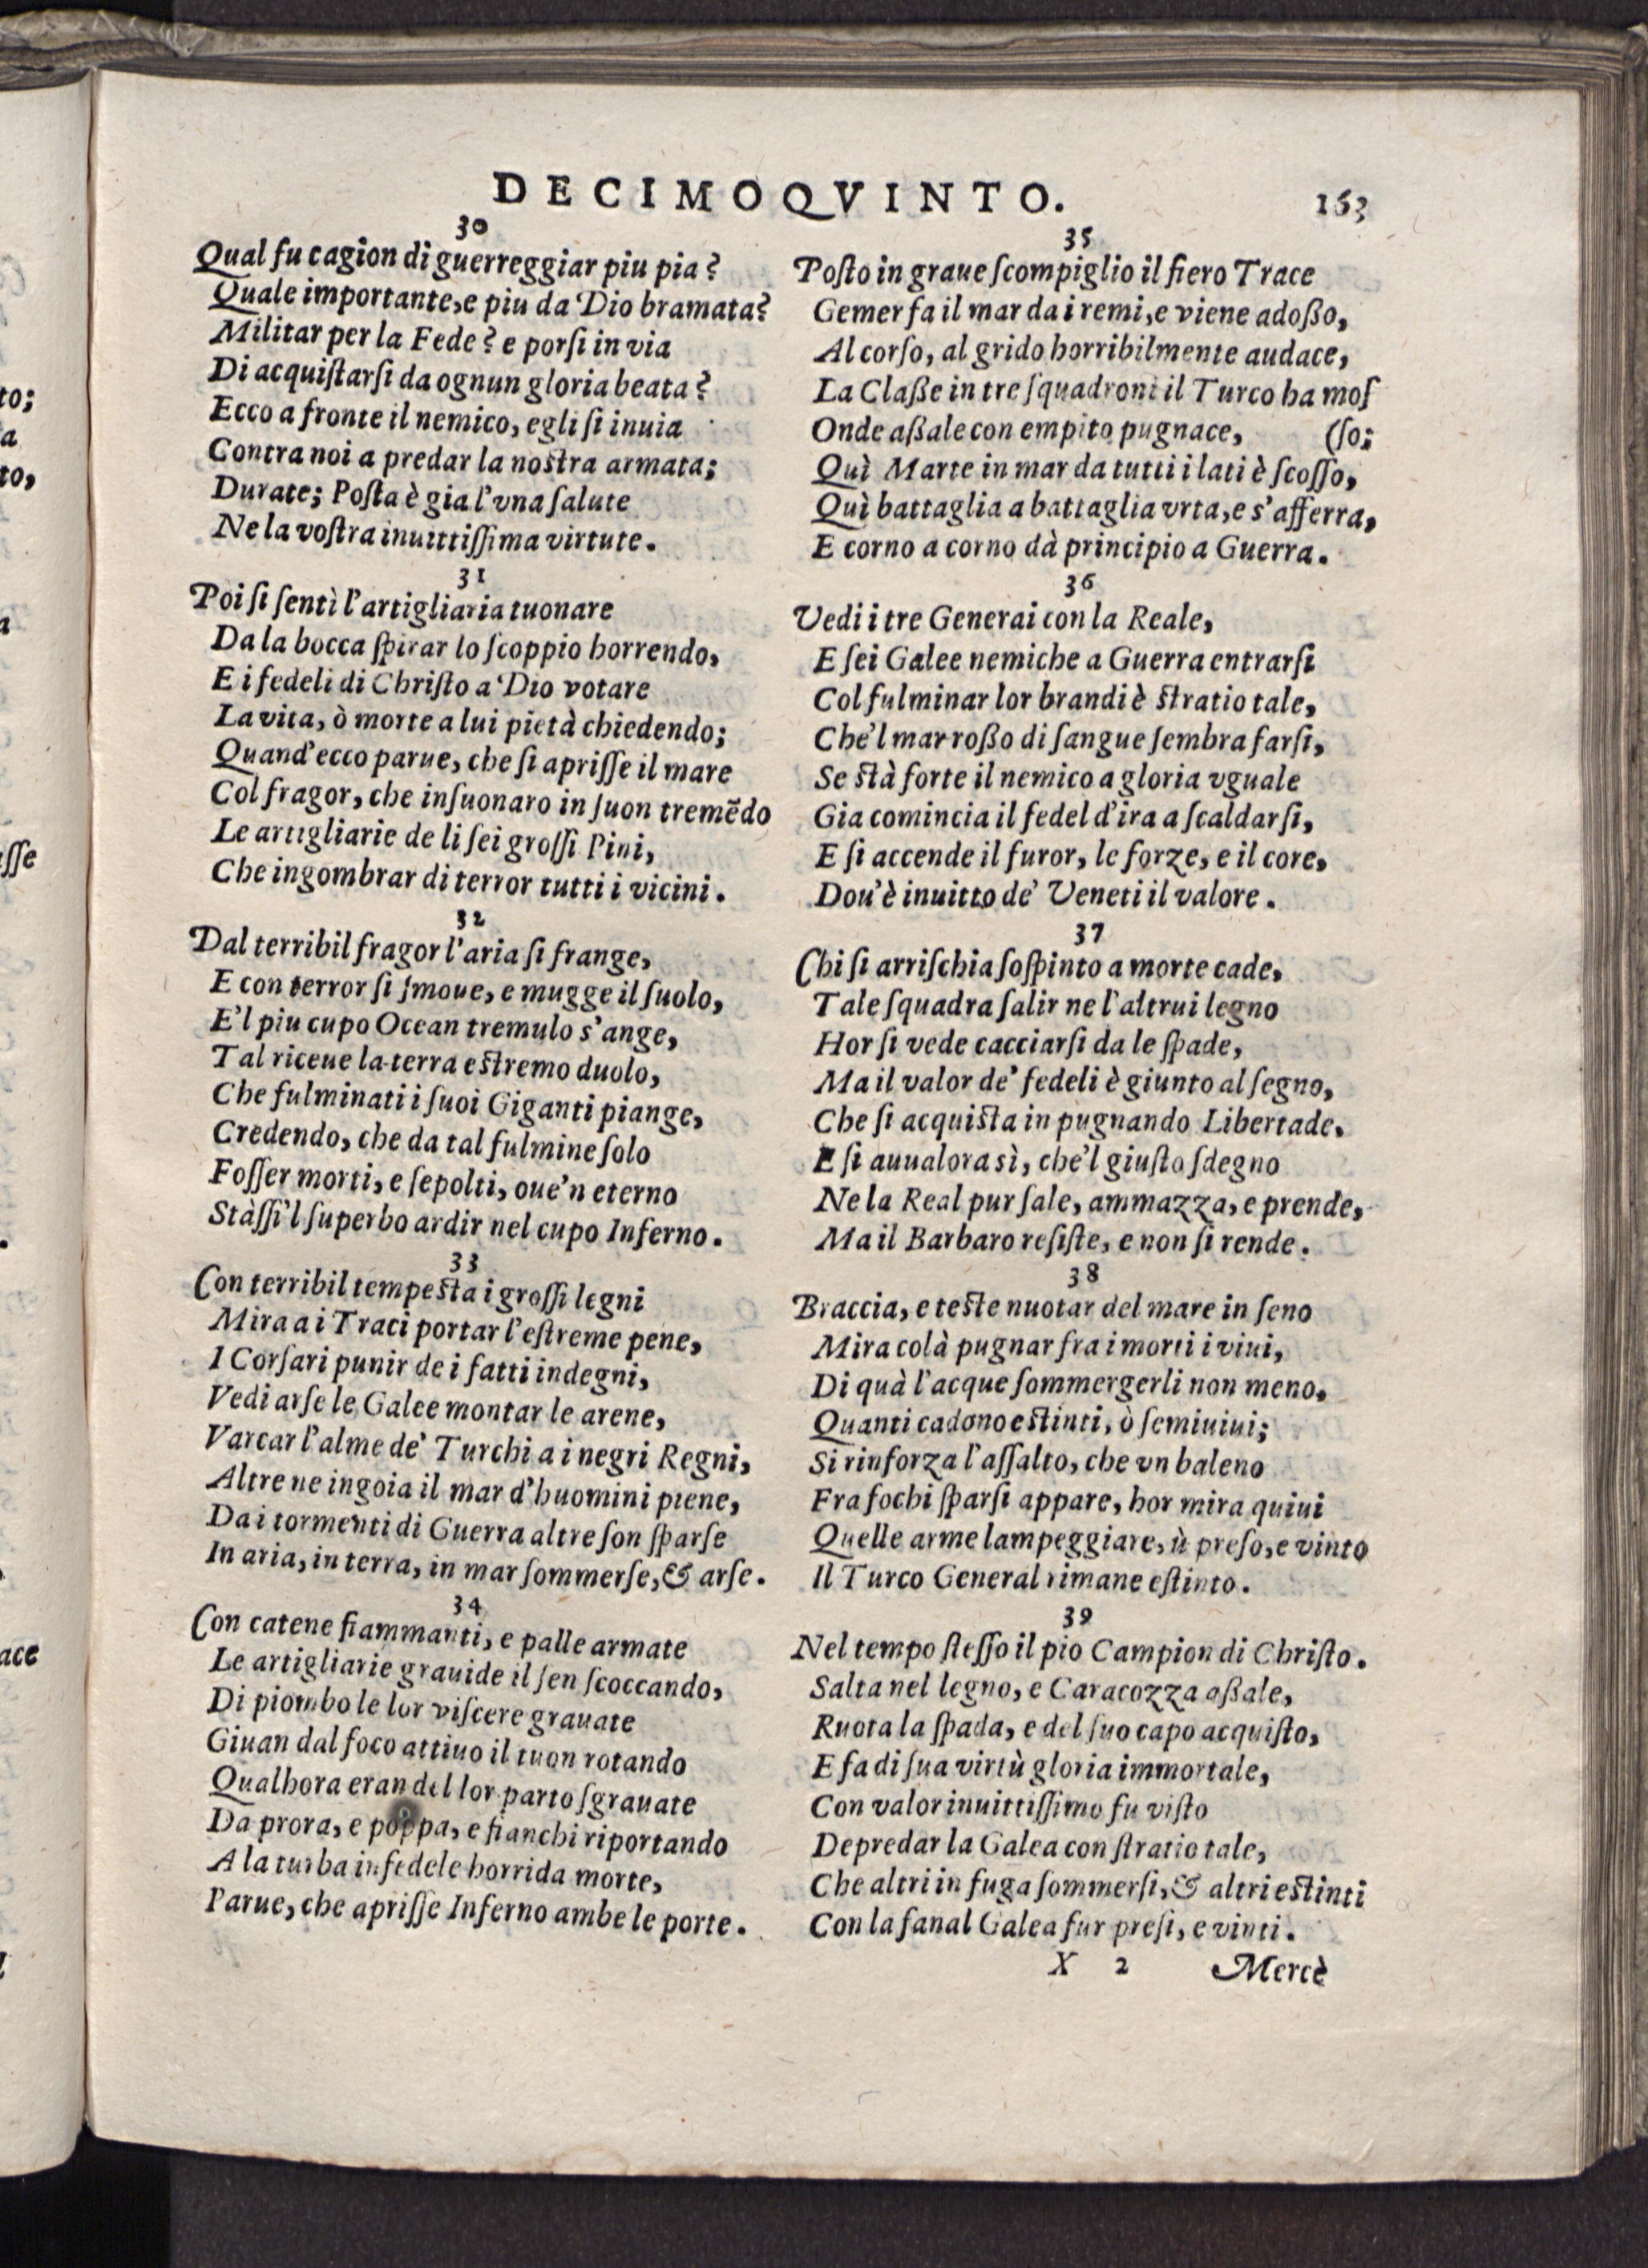 DECIMOQVINTO. 163
30
Qual fu cagion di guerreggiar piu pia?
Quale importante, e piu da Dio bramata?
Militar per la Fede? e porſi in via
Di acquiſtarſi da ognun gloria beata?
Ecco a fronte il nemico, egli ſi inuia
Contra noi a predar la noſtra armata;
Durate; Poſta è gia l'vna ſalute
Ne la voſtra inuittiſſima virtute.
31
Poi ſi ſentì l'artigliaria tuonare
Da la bocca ſpirar lo ſcoppio horrendo,
E i fedeli di Chriſto a Dio votare
La vita, ò morte a lui pietà chiedendo;
Quand'ecco parue, che ſi apriſſe il mare
Col fragor, che inſuonaro in ſuon tremẽdo
Le artigliarie de li ſei groſſi Pini,
Che ingombrar di terror tutti i vicini.
32
Dal terribil fragor l'aria ſi frange,
E con terror ſi ſmoue, e mugge il ſuolo,
E'l piu cupo Ocean tremulo s'ange,
Tal riceue la terra eſtremo duolo,
Che fulminati i ſuoi Giganti piange,
Credendo, che da tal fulmine ſolo
Foſſer morti, e ſepolti, oue'n eterno
Staſſi'l ſuperbo ardir nel cupo Inferno.
33
Con terribil tempeſta i groſſi legni
Mira a i Traci portar l'eſtreme pene,
I Corſari punir de i fatti indegni,
Vedi arſe le Galee montar le arene,
Varcar l'alme de' Turchi a i negri Regni,
Altre ne ingoia il mar d'huomini piene,
Da i tormenti di Guerra altre ſon ſparſe
In aria, in terra, in mar ſommerſe, & arſe.
34
Con catene fiammanti, e palle armate
Le artigliarie grauide il ſen ſcoccando,
Di piombo le lor viſcere grauate
Giuan dal foco attiuo il tuon rotando
Qualhora eran del lor parto ſgrauate
Da prora, e poppa, e fianchi riportando
A la turba infedele horrida morte,
Parue, che apriſſe Inferno ambe le porte.
35
Poſto in graue ſcompiglio il fiero Trace
Gemer fa il mar da i remi, e viene adoßo,
Al corſo, al grido horribilmente audace,
La Claße in tre ſquadroni il Turco ha moſ
Onde aßale con empito pugnace, (ſo;
Quì Marte in mar da tutti i lati è ſcoſſo,
Quì battaglia a battaglia vrta, e s'afferra,
E corno a corno dà principio a Guerra.
36
Vedi i tre Generai con la Reale,
E ſei Galee nemiche a Guerra entrarſi
Col fulminar lor brandi è ſtratio tale,
Che'l mar roßo di ſangue ſembra farſi,
Se ſtà forte il nemico a gloria vguale
Gia comincia il fedel d'ira a ſcaldarſi,
E ſi accende il furor, le forze, e il core,
Dou'è inuitto de' Veneti il valore.
37
Chi ſi arriſchia ſoſpinto a morte cade,
Tale ſquadra ſalir ne l'altrui legno
Hor ſi vede cacciarſi da le ſpade,
Ma il valor de' fedeli è giunto al ſegno,
Che ſi acquiſta in pugnando Libertade,
E ſi auualora sì, che'l giuſto ſdegno
Ne la Real pur ſale, ammazza, e prende,
Ma il Barbaro reſiſte, e non ſi rende.
38
Braccia, e teſte nuotar del mare in ſeno
Mira colà pugnar fra i morti i viui,
Di quà l'acque ſommergerli non meno,
Quanti cadono eſtinti, ò ſemiuiui;
Si rinforza l'aſſalto, che vn baleno
Fra fochi ſparſi appare, hor mira quiui
Quelle arme lampeggiare, ù preſo, e vinto
Il Turco General rimane eſtinto.
39
Nel tempo ſteſſo il pio Campion di Chriſto.
Salta nel legno, e Caracozza aßale,
Ruota la ſpada, e del ſuo capo acquiſto,
E fa di ſua virtù gloria immortale,
Con valor inuittiſſimo fu viſto
Depredar la Galea con ſtratio tale,
Che altri in fuga ſommerſi, & altri eſtinti
Con la fanal Galea fur preſi, e vinti.
X 2 Mercè